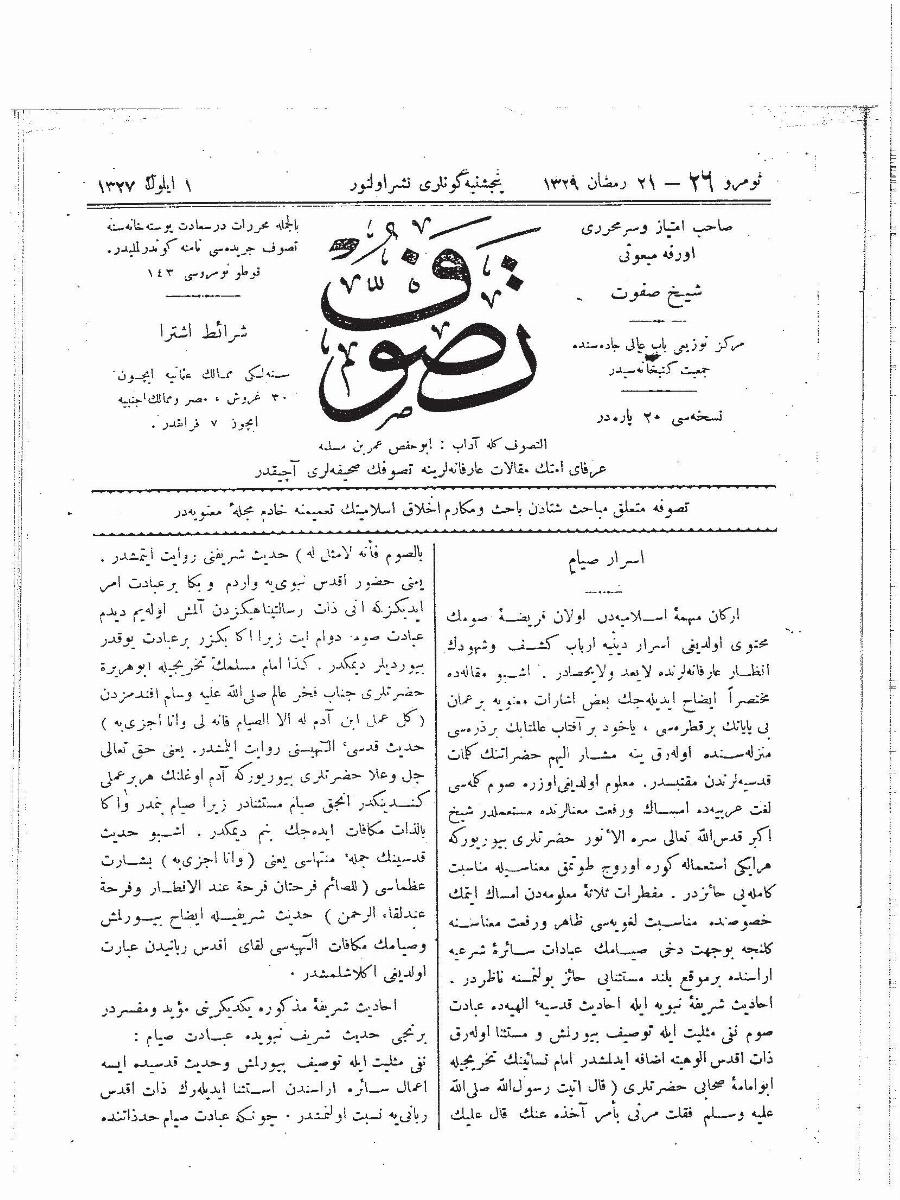 نومرو ٢٦ — ٢١ رمضان ١٣٢٩
پنجشنبه گونلری نشر اولنور
١ ایلول ١٣٢٧
صاحب امتیاز وسر محرری
اورفه مبعوثی
شیخ صفوت
مرکز توزیعی باب عالی جاده‌سنده
جمعیت کتبخانه‌سیدر
نسخه‌سی ٢٠ پاره‌در
تصوف
بالجمله محررات درسعادت پوسته‌خانه‌سنه
تصوف جریده‌سی نامنه کوندرلملیدر.
قوطو نومروسی ١٤٣
شرائط اشترا
سنه‌لکی ممالک عثمانیه ایچون
٣٠ غروش، مصر وممالک اجنبیه
ایچون ٧ فرانقدر.
التصوف کله آداب : ابو حفص عمر بن مسلمه
عرفای امتك مقالات عارفانه‌لرینه تصوفك صحیفه‌لری آچیقدر
تصوفه متعلق مباحث شتادن باحث ومکارم اخلاق اسلامیتك تعمیمنه خادم مجلهٔ معنویه‌در
اسرار صیام
ارکان مهمهٔ اسلامیه‌دن اولان فریضهٔ صومك
محتوی اولدیغی اسرار دینیه ارباب کشف وشهودك
انظار عارفانه‌لرنده لایعد ولایحصادر . اشبو مقاله‌ده
مختصراً ایضاح ایدیله‌جك بعض اشارات معنویه بر عمان
بی پایانك بر قطره‌سی ، یاخود بر آفتاب عالمتابك بر ذره‌سی
منزله‌سنده اوله‌رق ینه مشار الیهم حضراتنك کلمات
قدسیه‌لرندن مقتبسدر . معلوم اولدیغی اوزره صوم کله‌سی
لغت عربیه‌ده امساك ورفعت معنالرنده مستعملدر شیخ
اکبر قدس الله تعالی سره الأنور حضرتلری بیوریورکه
هر ایکی استعماله کوره اوروج طوتمق معناسیله مناسبت
کامله‌یی حائزدر . مفطرات ثلاثهٔ معلومه‌دن امساك ایتمك
خصوصنده مناسبت لغویه‌سی ظاهر ورفعت معناسنه
کلنجه بوجهت دخی صیامك عبادات سائرهٔ شرعیه
اراسنده بر موقع بلند مستثنایی حائز بولنمسنه ناظردر .
احادیث شریفهٔ نبویه ایله احادیث قدسیهٔ الهیه‌ده عبادت
صوم نفی مثلیت ایله توصیف بیورلمش و مستثنا اوله‌رق
ذات اقدس الوهیته اضافه ایدلمشدر امام نسائینك تخریجیله
ابوامامهٔ صحابی حضرتلری ( قال اتیت رسول الله صلی الله
علیه وسلم فقلت مرنی بأمر آخذه عنك قال علیك
بالصوم فأنه لامثل له ) حدیث شریفنی روایت ایتمشدر .
یعنی حضور اقدس نبوی‌یه واردم و بکا بر عبادت امر
ایدیکزکه انی ذات رسالتپناهیکزدن آلمش اوله‌یم دیدم
عبادت صومه دوام ایت زیرا اکا بکزر بر عبادت یوقدر
بیوردیلر دیمکدر . کذا امام مسلمك تخریجیله ابوهریره
حضرتلری جناب فخر عالم صلی الله علیه وسلم افندمزدن
( کل عمل ابن آدم له الا الصیام فانه لی وانا اجزی به )
حدیث قدسیٔ الٓهیسنی روایت ایلمشدر. یعنی حق تعالی
جل وعلا حضرتلری بیوریورکه آدم اوغلنك هر بر عملی
کندینکدر انجق صیام مستثنادر زیرا صیام بنمدر واکا
بالذات مکافات ایده‌جك بنم دیمکدر . اشبو حدیث
قدسینك جملهٔ منتهاسی یعنی ( وانا اجزی به ) بشارت
عظماسی ( للصائم فرحتان فرحة عند الافطار وفرحة
عند لقاء الرحمن ) حدیث شریفیله ایضاح بیورلمش
وصیامك مکافات الٓهیه‌سی لقای اقدس ربانیدن عبارت
اولدیغی اکلاشلمشدر .
احادیث شریفهٔ مذکوره یکدیکرینی مؤید ومفسردر
برنجی حدیث شریف نبویده عبادت صیام :
نفی مثلیت ایله توصیف بیورلمش وحدیث قدسیده ایسه
اعمال سائره اراسندن استثنا ایدیله‌رك ذات اقدس
ربانی‌یه نسبت اولنمشدر . چونکه عبادت صیام حد ذاتنده